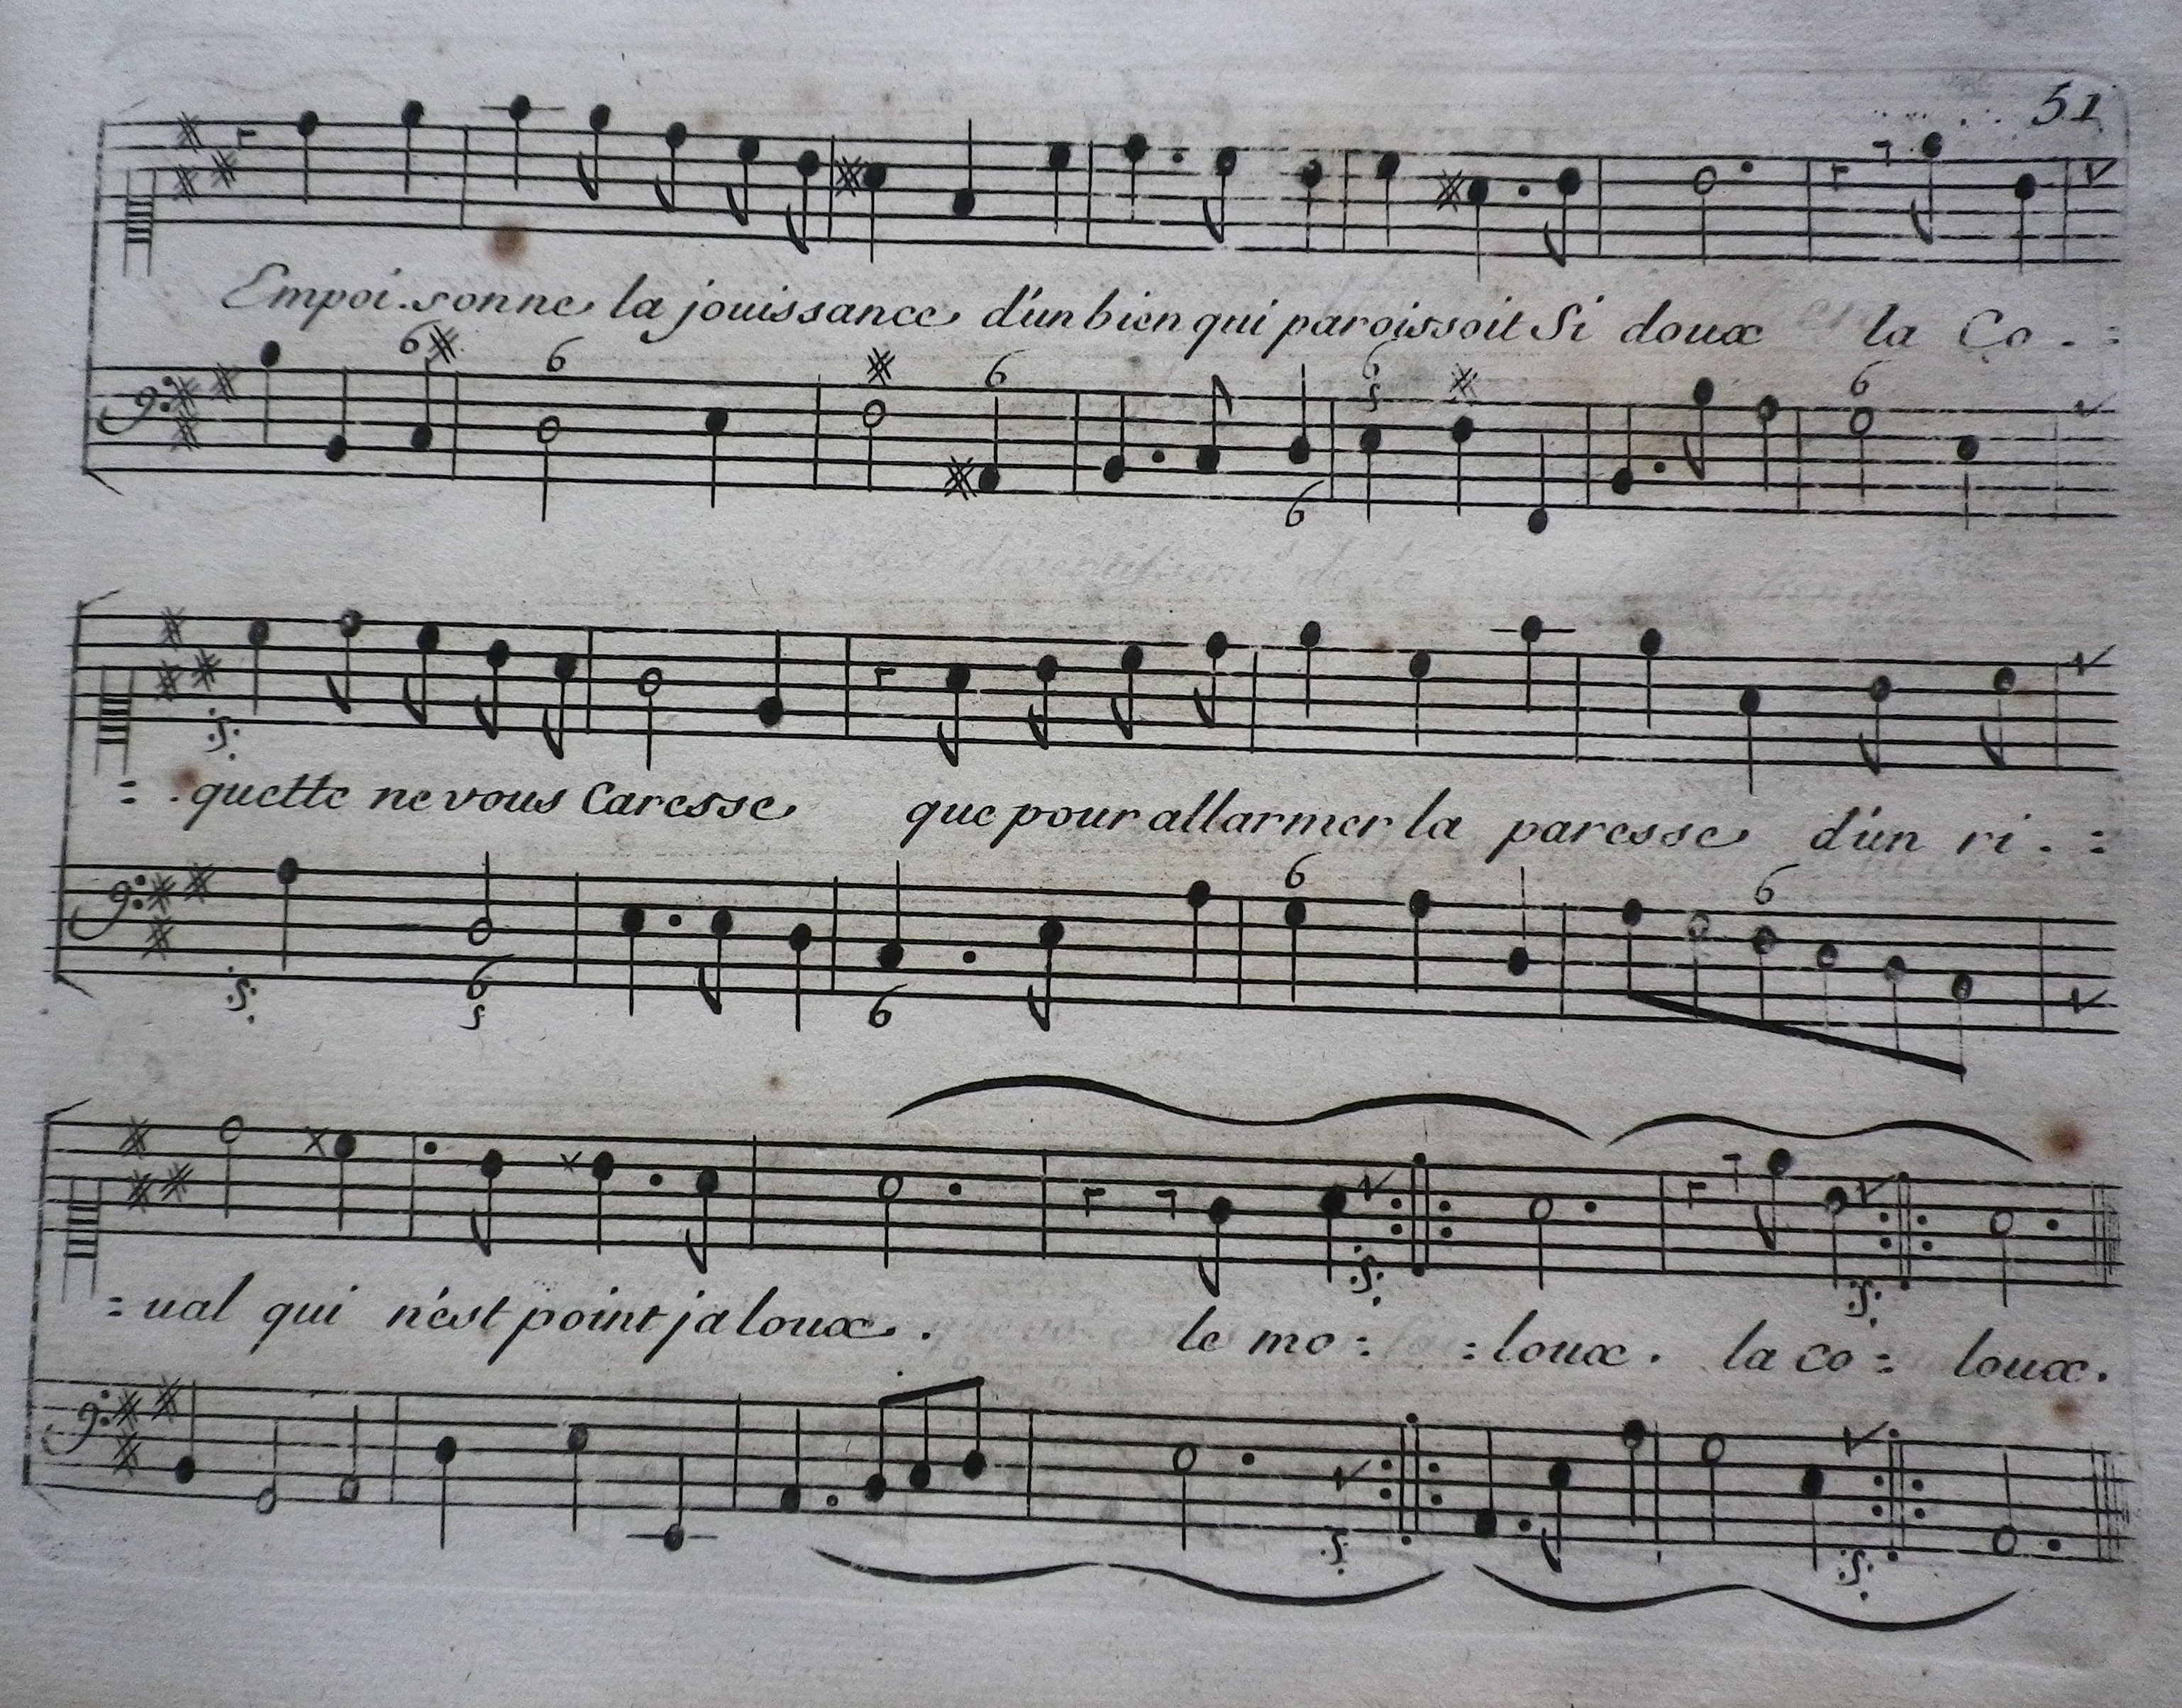 51
Empoi.sonne la jouissance d'un bien qui paroissoit Si doux la Co.=
6 6 6 6 6 6
5
6
=.quette ne vous Caresse que pour allarmer la paresse d'un ri.=
6 6
6 6
5
=ual qui n'est point jaloux. le mo= =loux. la co= loux.